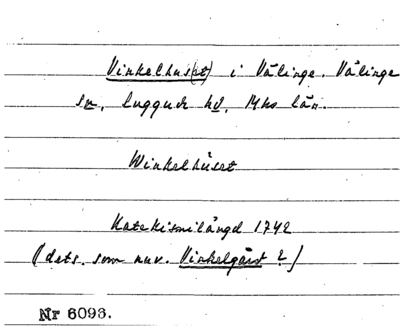 Vinkelhus(et) i Vålinge. Vålinge
sn, Luggude hd, Mhs län.
Winkelhuset
Katekismilängd 1742
(dets. som nuv. Vinkelgård ?)
Nr 6093.